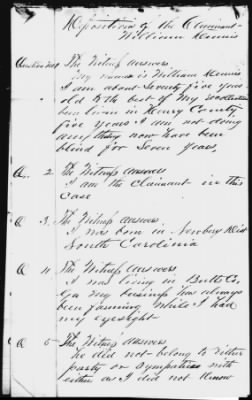 Deposition of the Claimant
William Dennis
Question 1st The Witness answers
My name is William Dennis
I am about Seventy five years
old to the best of my recollection
been livin in Henry County
five years I am not doing
any thing now have been
blind for Seven years,
Q. 2 The Witness answers
I am the claimant in this
case
Q 3. The Witness answers
I was born in Newbury Dist
South Carolinia
Q 4. The Witness answers,
I was living in Butts Co,
Ga my business was always
been farming while I had
my eyesight-
Q 5 The Witness answers
he did not belong to either
party or Sympathise with
either as I did not know